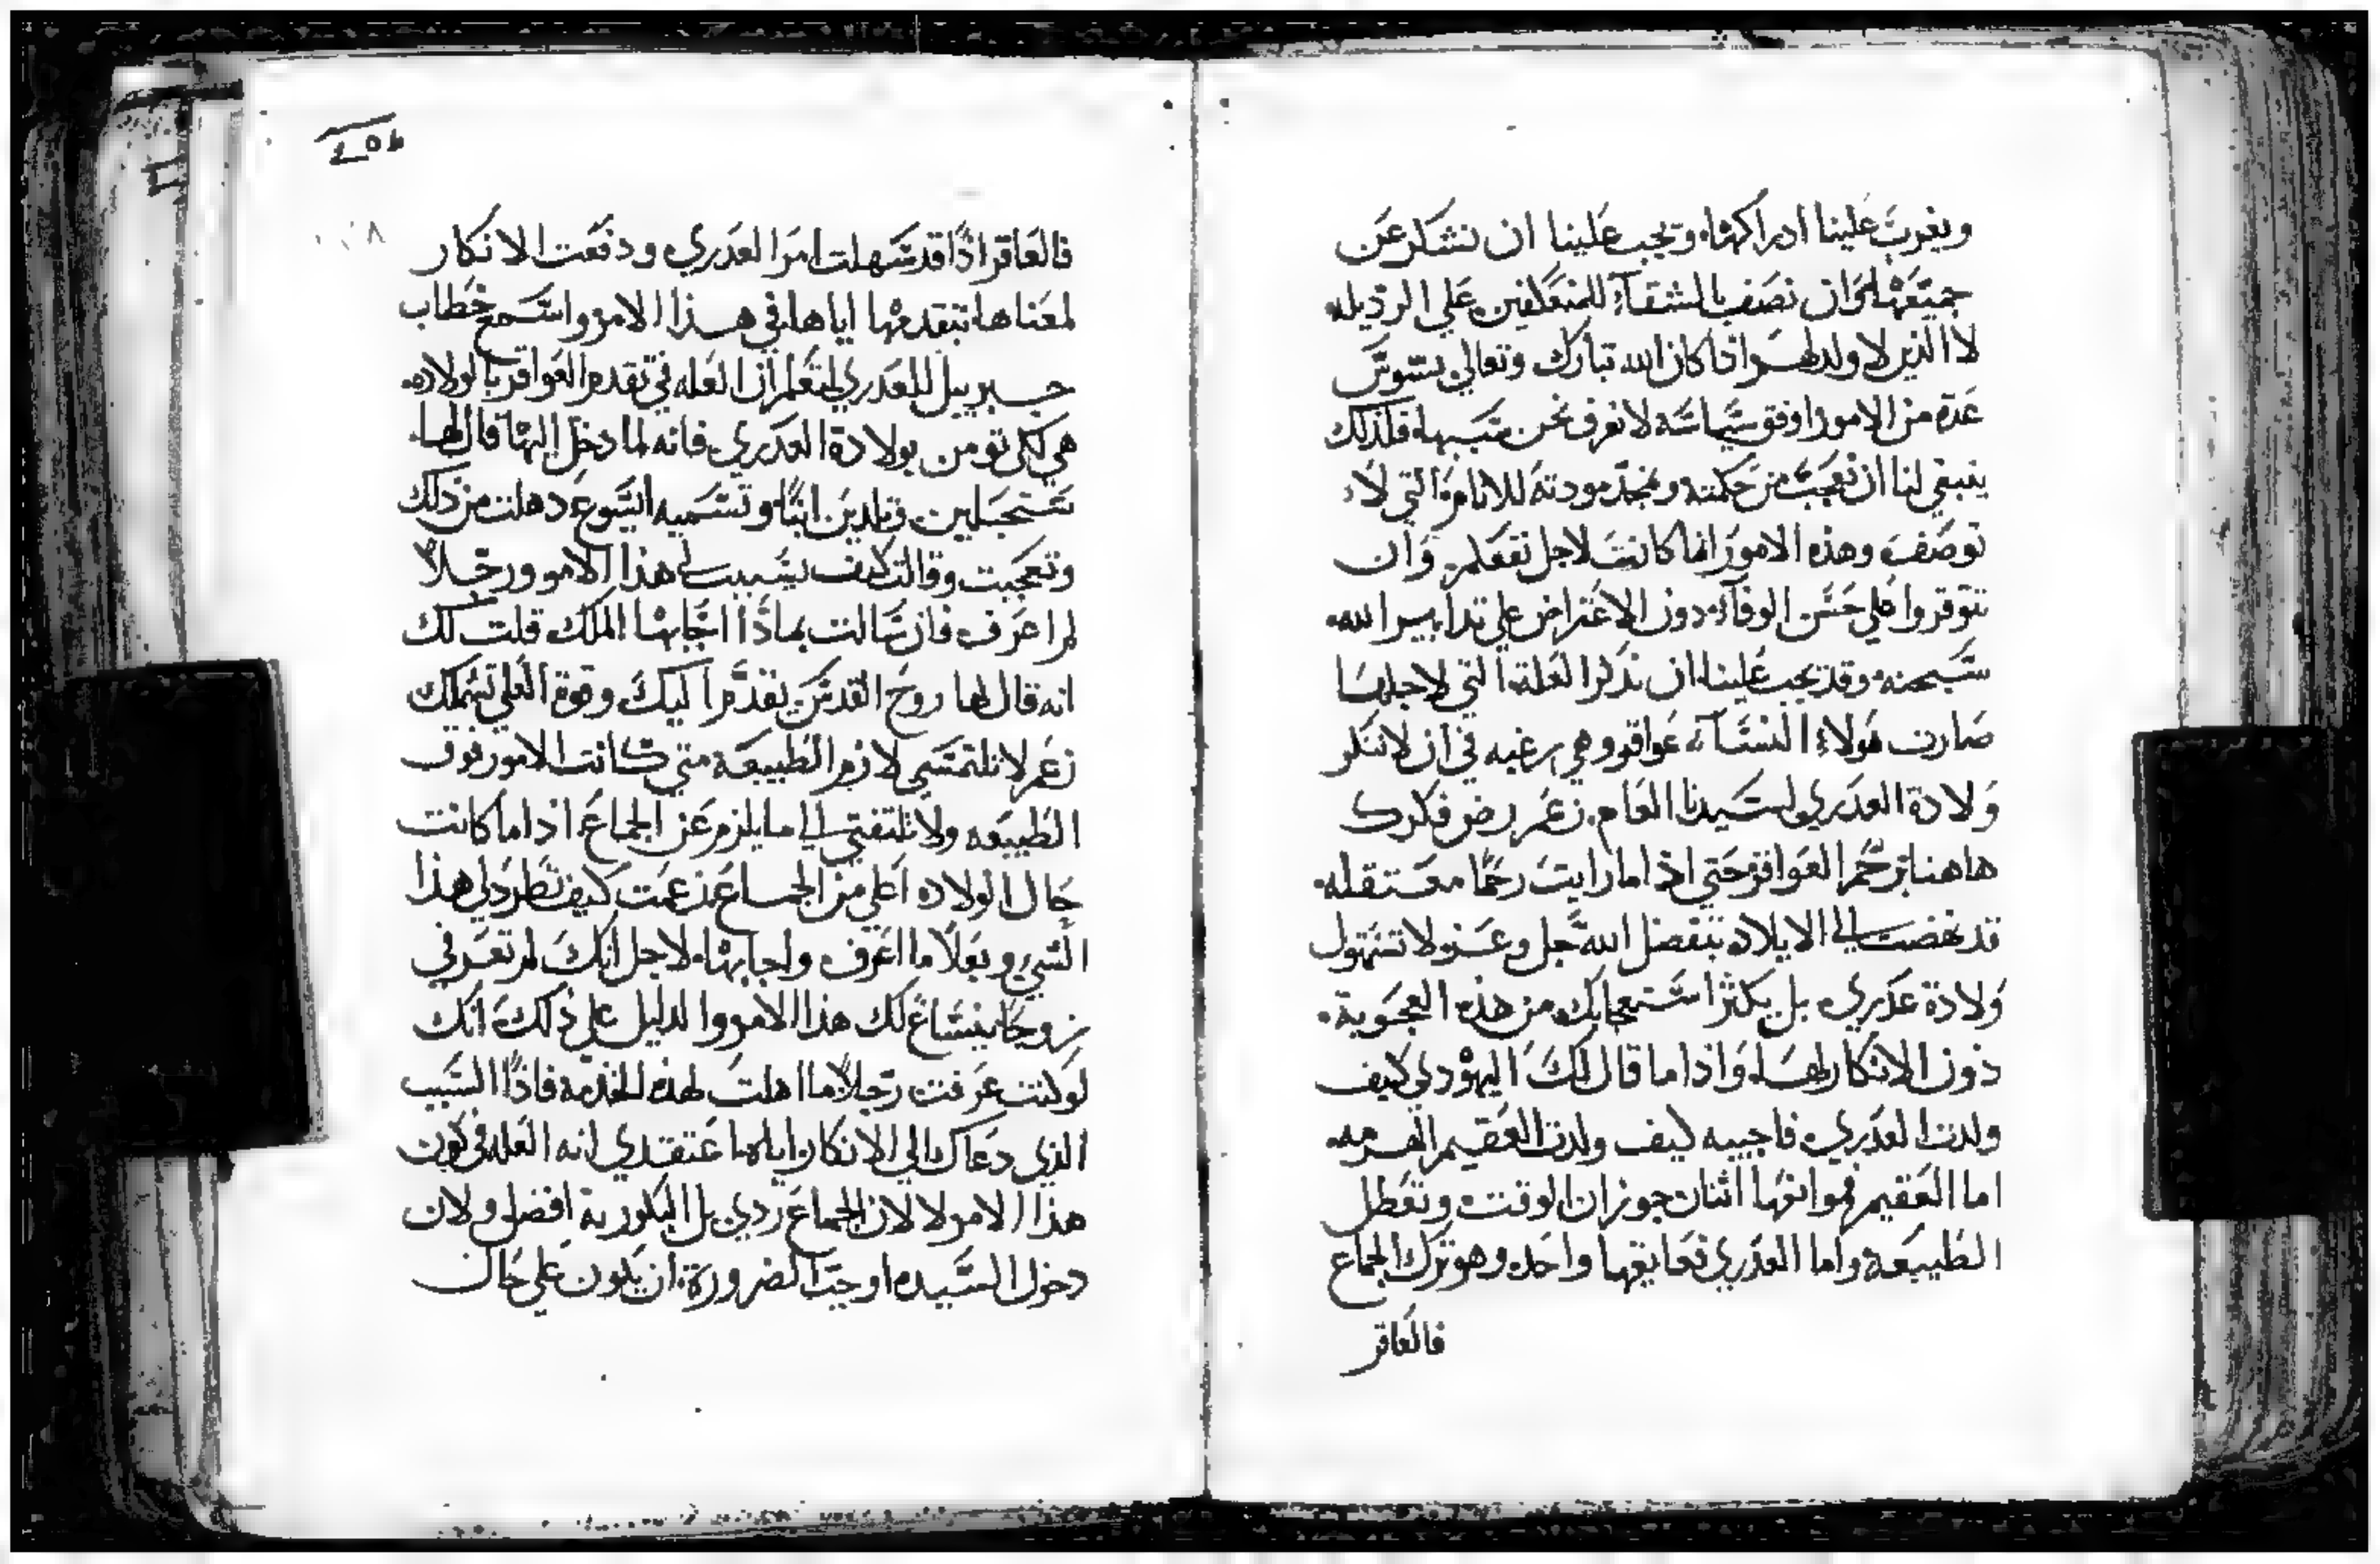 ويغرب علينا ادراكها، وتجب علينا ان نشكر عن
جميعها، وان نصف بالشقاء المتعكفين على الرذيله.
لا الذين لا ولد لهم، واذا كان الله تبارك وتعالي يسوس
عدة من الامور اوفق سياسه لا نعرف نحن سببها، فلذلك
ينبغي لنا ان نعجب من حكمته ونمجد مودته للانام، التي لا
توصف وهذه الامور انما كانت لاجل نفعكم، وان
تتوقروا علي حسن الوفاء، دون الاعتراض علي تدابير الله.
سبحنه، وقد يجب علينا ان نذكر العلة التي لاجلها
صارت هولاء النساء عواقر وهي رغبه في ان لا ننكر
ولادة العدري لسيدنا العام. زعم رض فكرك
هاهنا برحم العواقر حتي اذا ما رايت رحما معتقله.
قد نهضت الي الايلاد بتفضل الله جل وعز ولا تستهول
ولادة عدري، بل يكثر استعجابك، من هذه العجوبة.
دون الانكار لها، واذا ما قال لك اليهودي كيف
ولدت العدري، فاجيبه كيف ولدت العقيم الهرمه.
اما العقيم فموانعها اثنان جوزان الوقت وتعطل
الطبيعه، واما العدري فعايقها واحد وهو ترك الجماع
فالعاقر
فالعاقر اذا قد سهلت امر العدري ودفعت الانكار
لمعناها، بتقدمها اياها في هذا الامر واسمع خطاب
جبرييل للعدري لتعلم ان العله في تقدم العواقر بالولاده.
هي لكي تومن بولادة العدري، فانه لما دخل اليها قال لها.
ستحبلين وتلدين ابنا وتسميه ايسوع، دهلت من ذلك
وتعجبت وقالت كيف يسبب لي هذا الامر ورجلا
لم اعرف فان سالت بماذا اجابها الملك قلت لك
انه قال لها روح القدس يقدم اليك وقوة العلي تشملك
زعم لا تلتمسي لازم الطبيعه متي كانت الامور فوق
الطبيعه ولا تلتفتي الي ما يلزم عن الجماع، اذا ما كانت
حال الولاده اعلي من الجماع زعمت كيف تطرد لي هذا
الشي وبعلا ما اعرف، واجابها، لاجل انك لم تعرفي
زوجا ينساغ لك هذا الامر والدليل علي ذلك انك
لو كنت عرفت رجلا ما اهلت لهذه الخدمه فاذا السبب
الذي دعاك الي الانكار اياه اعتقدي انه العله في كون
هذا الامر لا لان الجماع ردي بل البكورية افضل ولان
دخول السيد اوجبت الضرورة، ان يكون علي حال